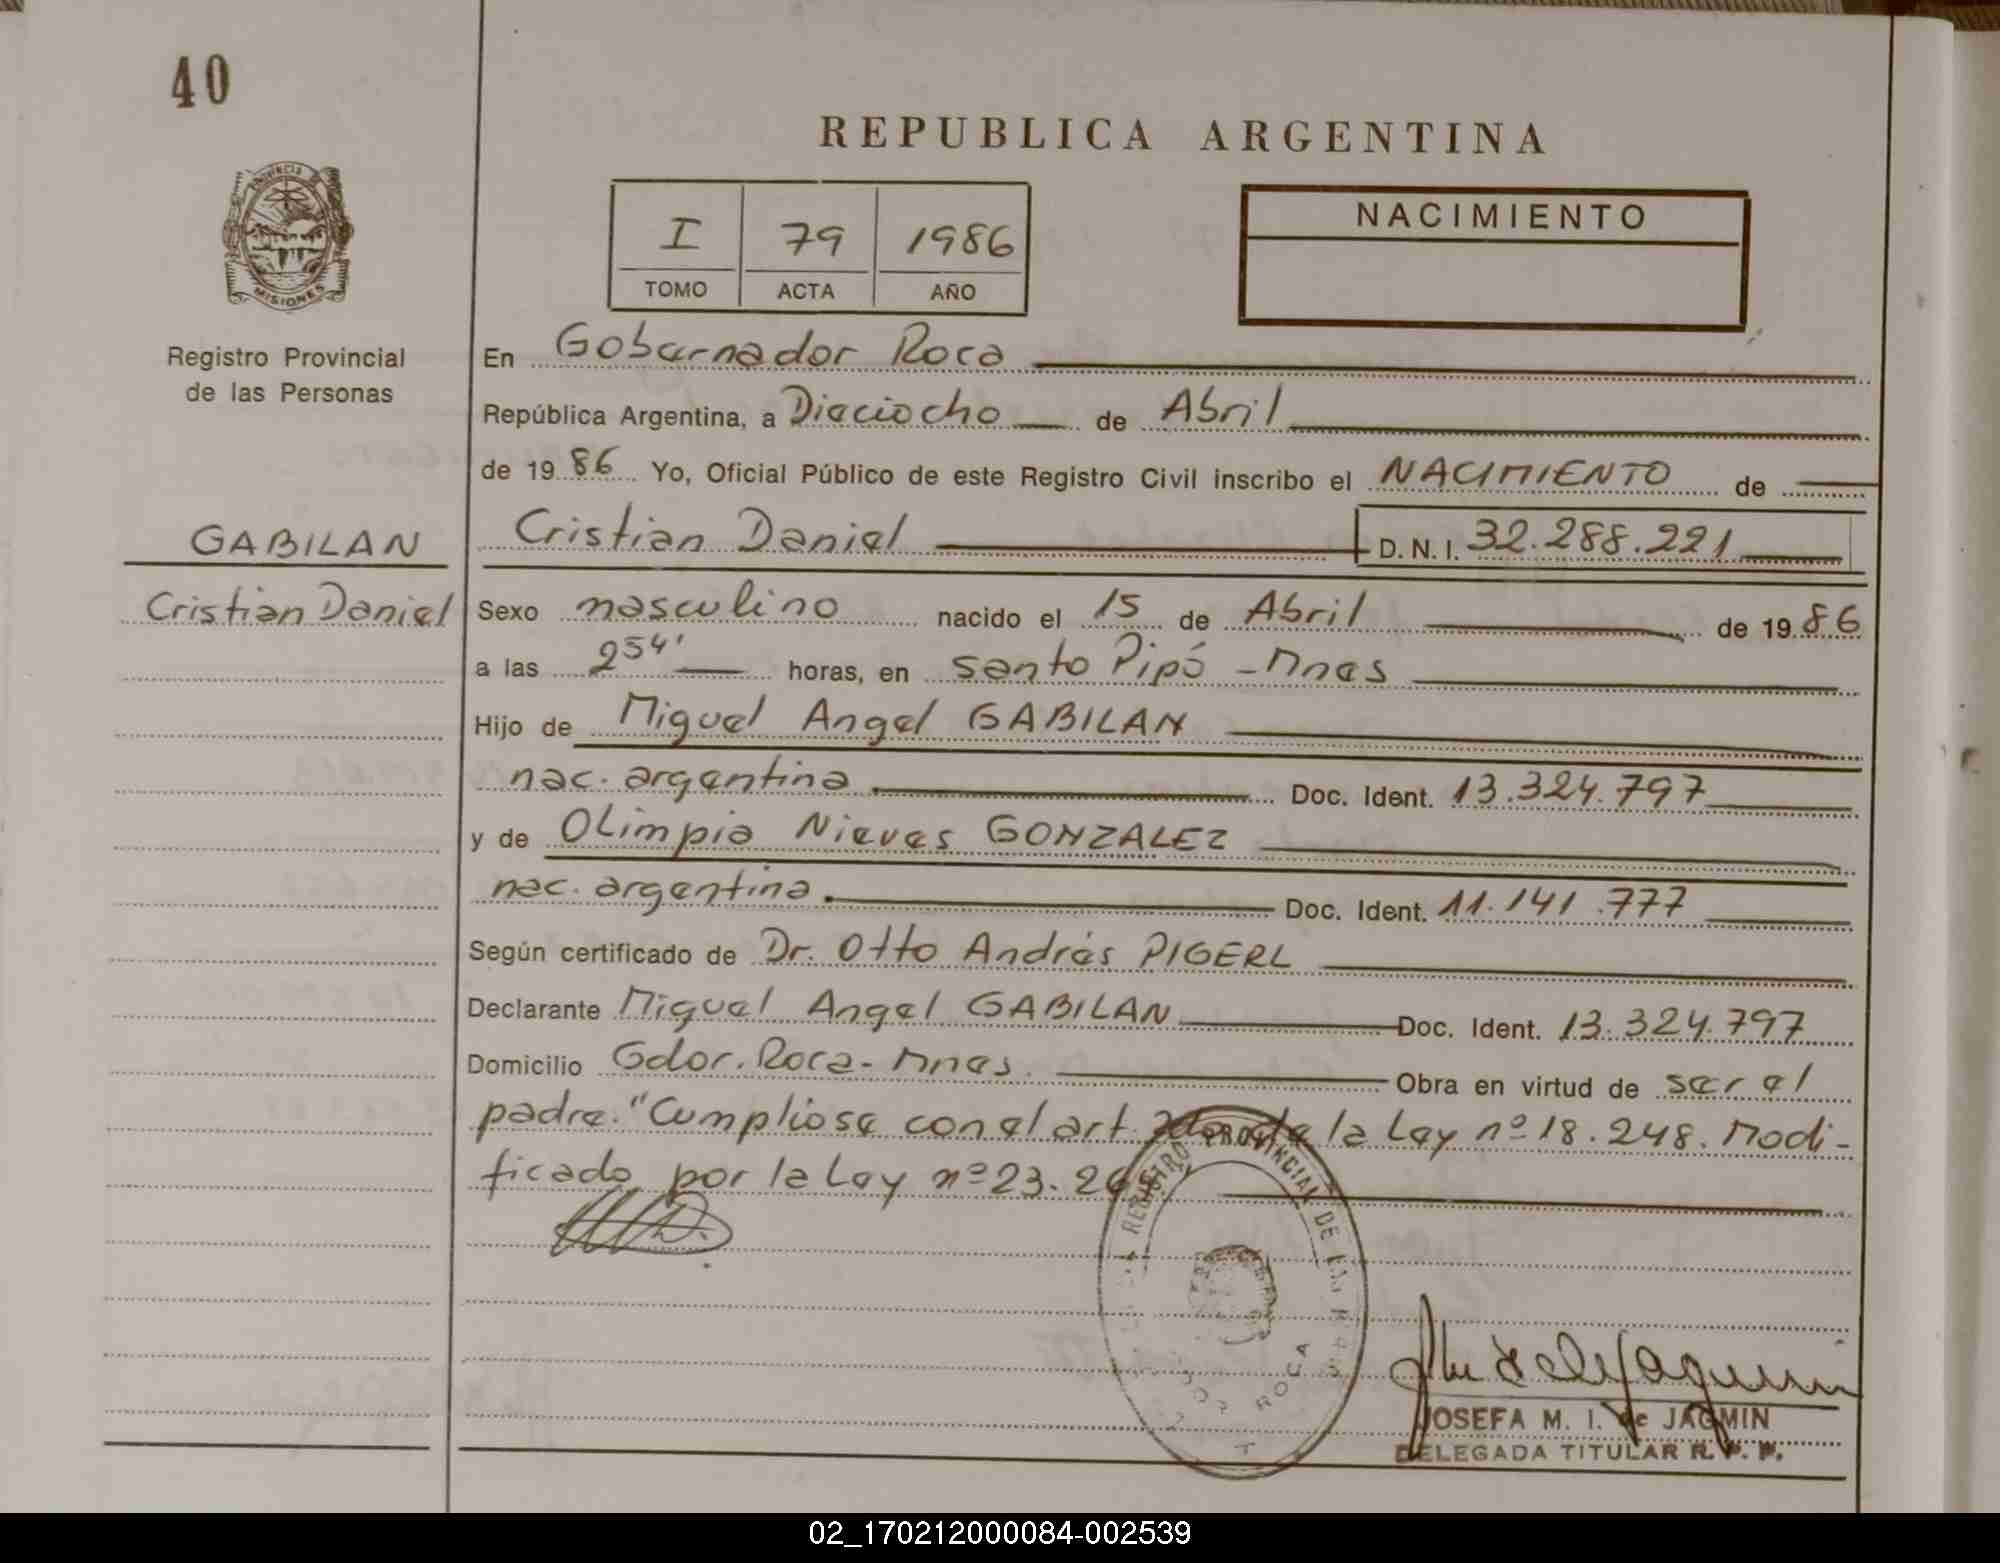 40
REPUBLICA ARGENTINA
I 79 1986
TOMO ACTA AÑO
NACIMIENTO
PROVINCIA DE
MISIONES
Registro Provincial
de las Personas
GABILAN
Cristian Daniel
En Gobernador Roca
República Argentina, a Dieciocho de Abril
de 1986 Yo, Oficial Público de este Registro Civil inscribo el NACIMIENTO de
Cristian Daniel D. N. I. 32.288.221
Sexo masculino nacido el 15 de Abril de 1986
a las 2 54' horas, en Santo Pipó - Mnes
Hijo de Miguel Angel GABILAN
nac. argentina Doc. Ident. 13.324.797
y de Olimpia Nieves GONZALEZ
nac. argentina. Doc. Ident. 11.141.777
Según certificado de Dr. Otto Andrés PIGERL
Declarante Miguel Angel GABILAN Doc. Ident. 13.324.797
Domicilio Gdor. Roca - Mnes. Obra en virtud de ser el
padre. "Cumpliose con el art. de la Ley nº 18.248. Modi-
ficado por la Ley nº 23.
REGISTRO PROVINCIAL DE
ROCA
JOSEFA M. I. de JAGMIN
DELEGADA TITULAR R. P. P.
02_170212000084-002539